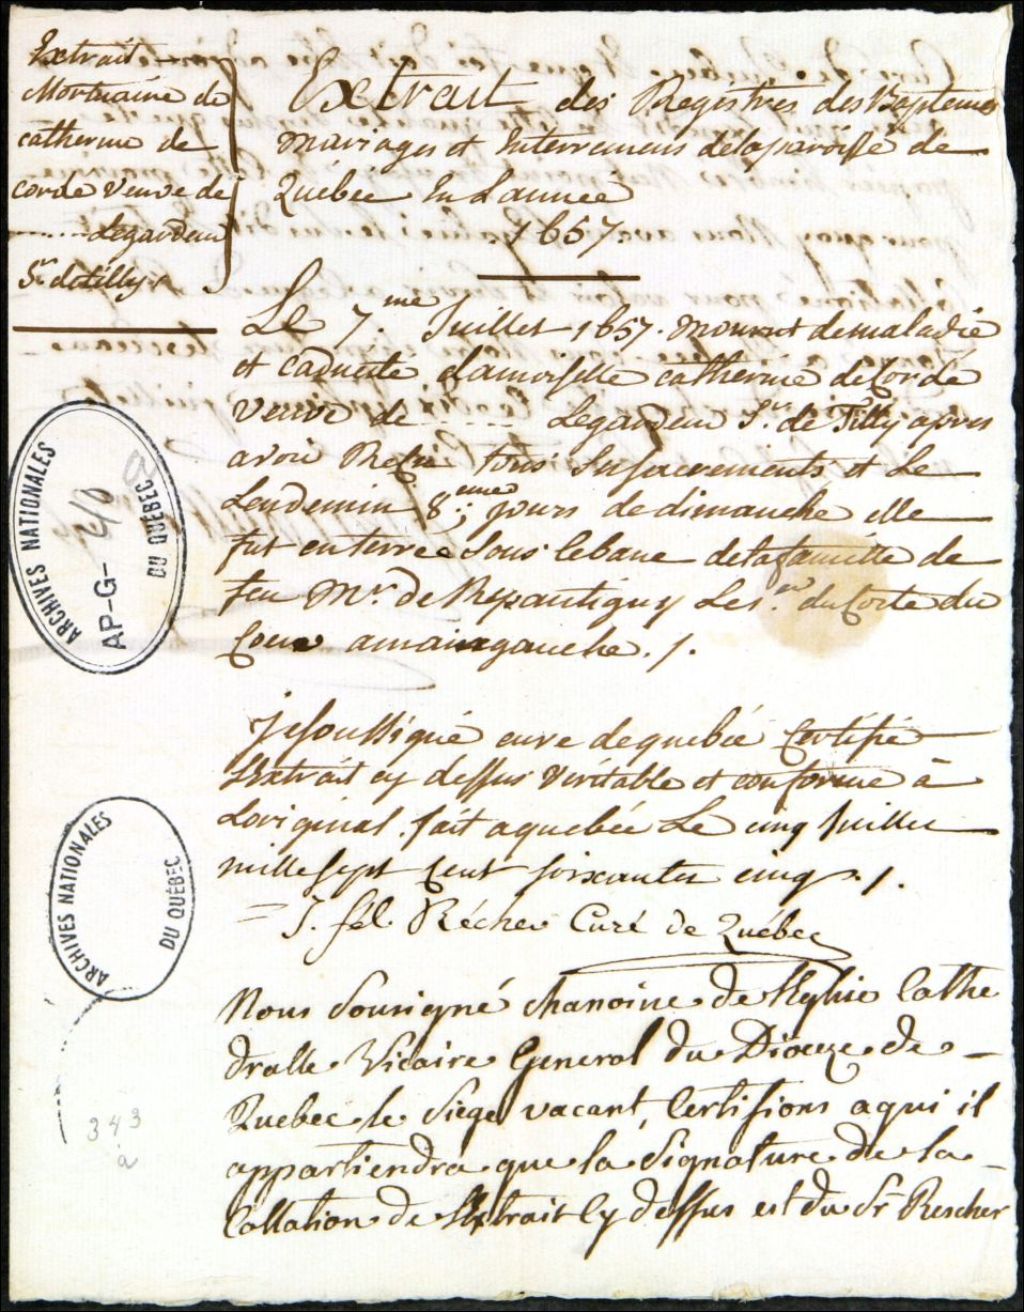 Extrait
Mortuaire de
catherine de
corde veuve de
......Legardeur
Sr. de tilly
Extrait des Registres des Baptemes
mariages et Enterremens delaparoisse de
Québec En Lannee
1657.
Le 7.me Juillet 1657. mourut demaladie
et caducité damoiselle catherine deCordé
veuve de ...... Legardeur Sr. de Tilly apres
avoir Reçu tous sessacrements et Le
Lendemin 8eme; jours dedimanche elle
fut enterreé sous lebanc delafamille de
feu Mr. de Repantigny Les.r ducoté du
amaingauche. /.
Jesoussigné curé dequebéc Certifie
Lextrait cy dessus véritable et conforme à
Loriginal. fait aquebéc Le cinq Juillet
millesept Cent soixante cinq. /.
= J. fel. Récher Curé de Québec
Nous sousigné chanoine de Leglise Cathe
dralle Vicaire General du Dioceze de -
Quebec le siege vacant, Certifions aqui il
appartiendra que la signature de la -
Collation de Lextrait Cy dessus est du Sr. Rescher
ARCHIVES NATIONALES
DU QUÉBEC
AP-G-40
ARCHIVES NATIONALES
DU QUÉBEC
343
a